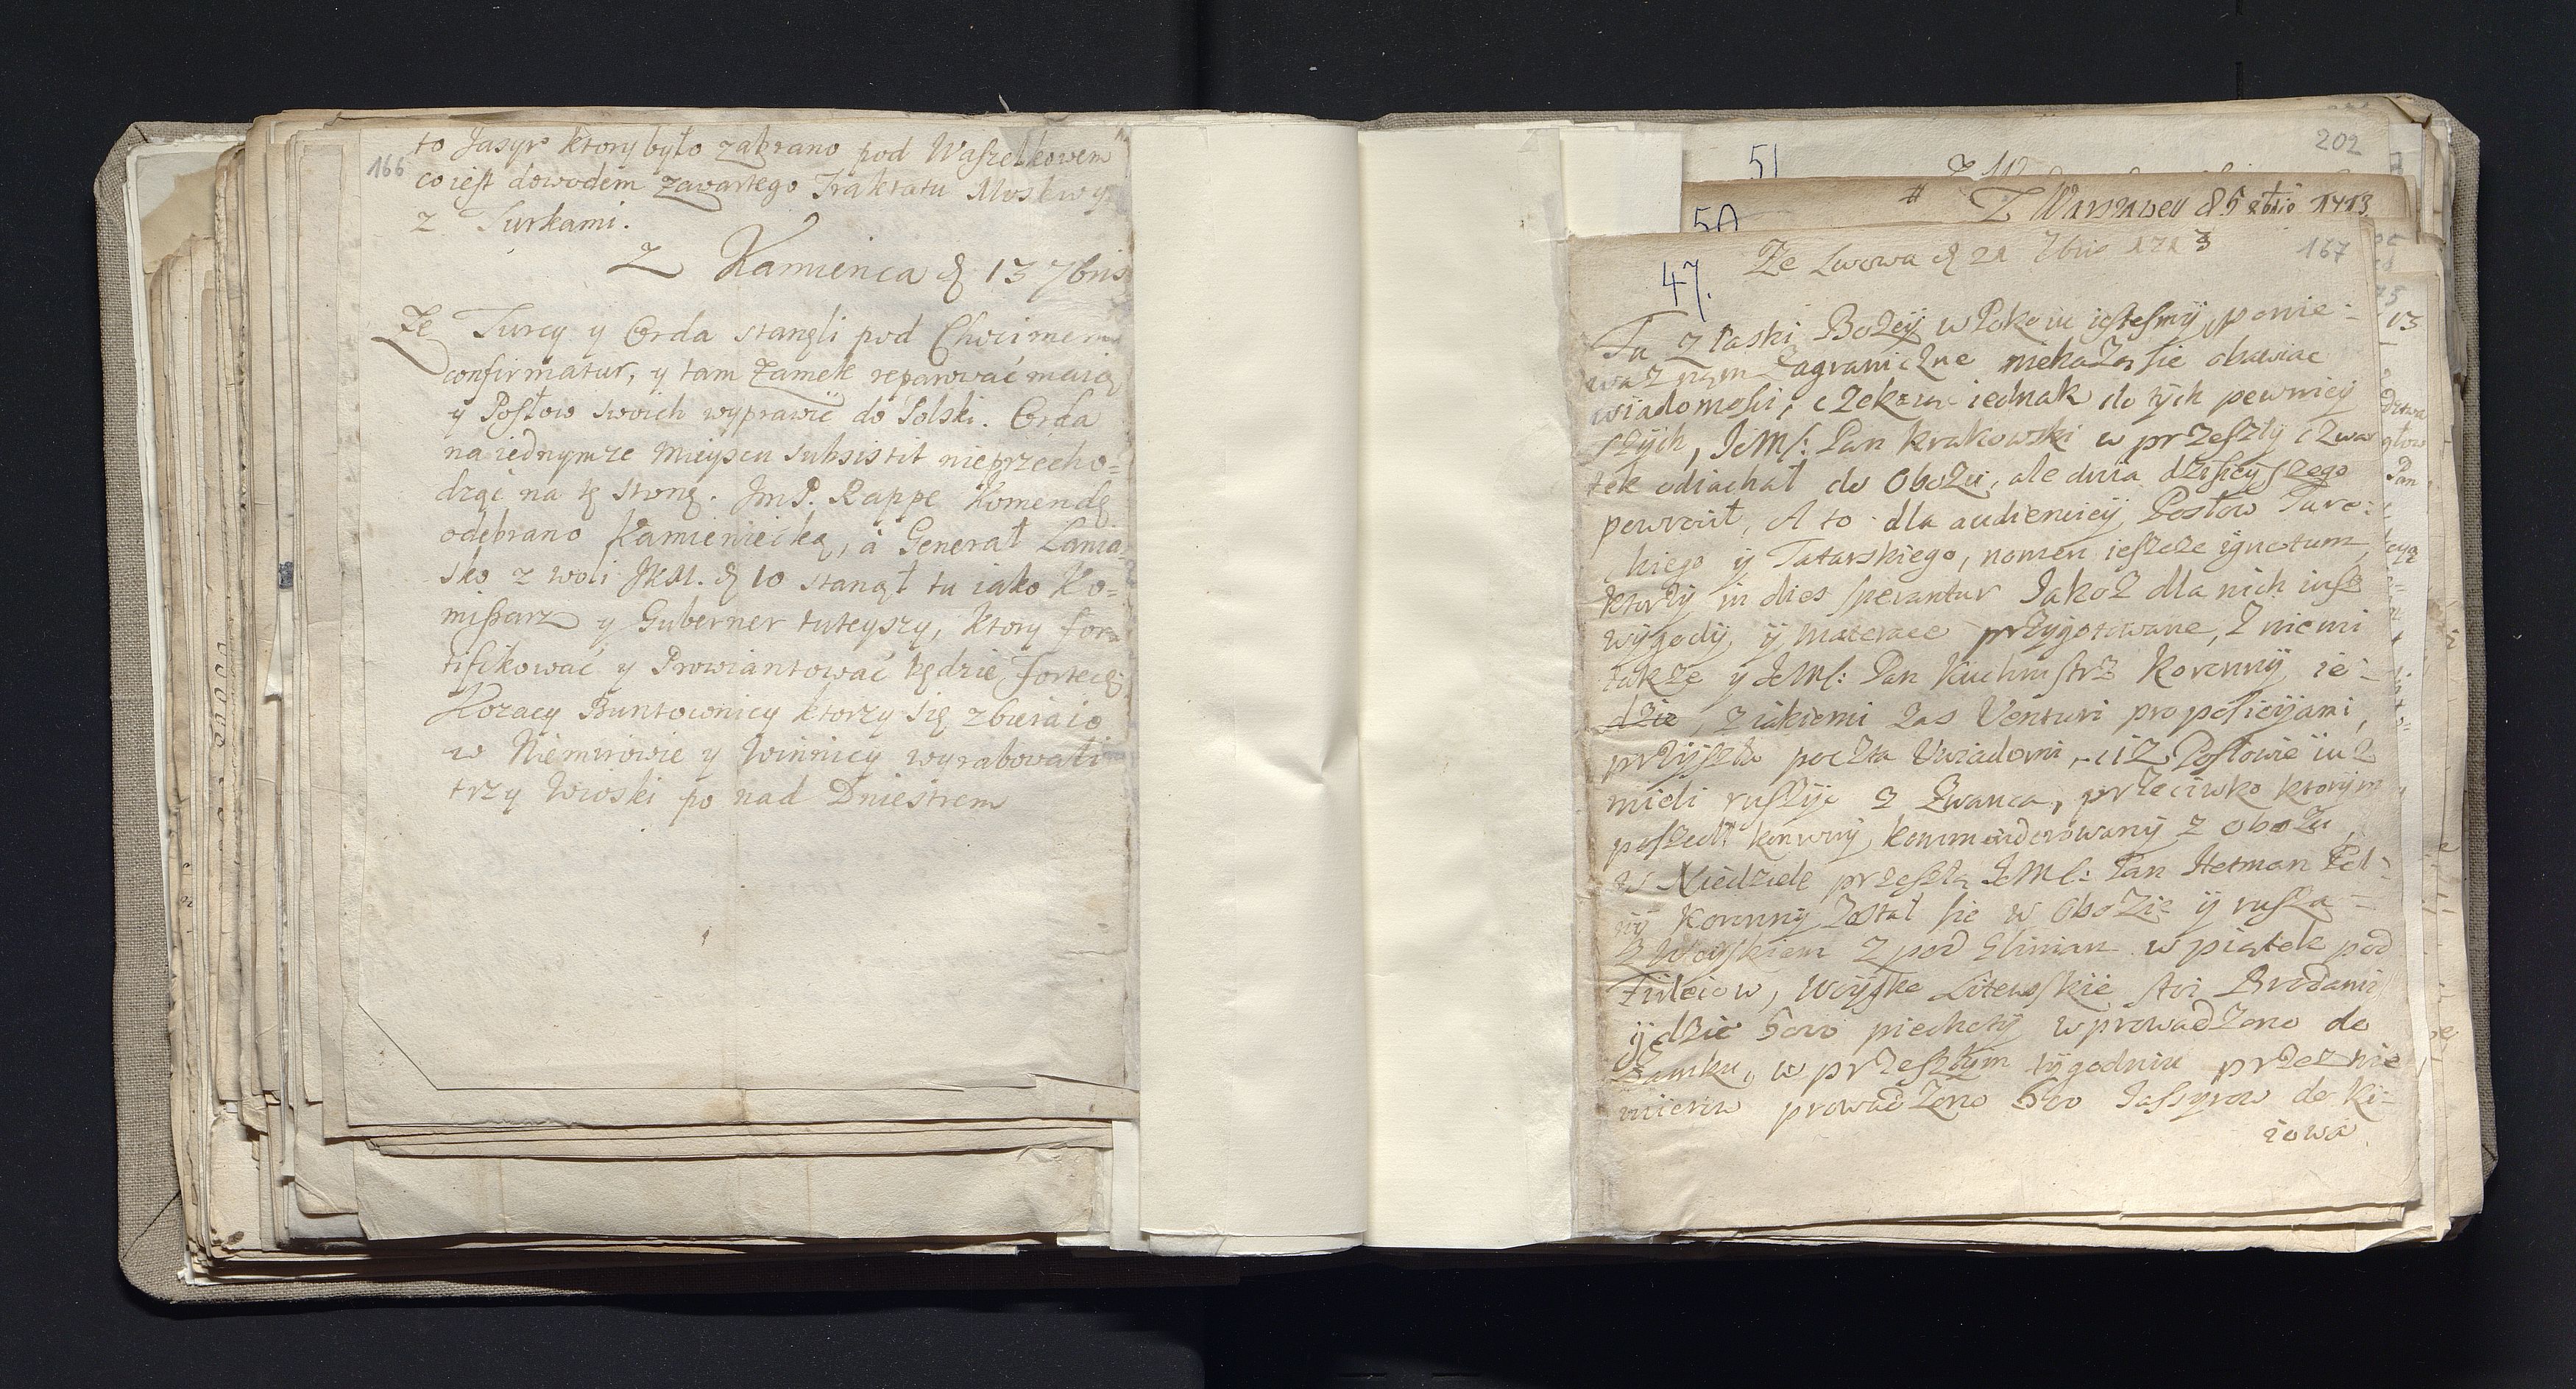 166
to Jasyr ktory było zabrano pod Waszelkowem
co iest dowodem zawartego Traktatu Moskwy
z Turkami.
Z Kamienca d. 13 7bris
Ze Turcy y Orda stanęli pod Chocimem
confirmatur, y tam Zamek reparować maią
y Posłow swoich wyprawić do Polski. Orda
na iednymze mieyscu subsistit nieprzecho=
dząc na tę stronę. Jm P. Rappe Komendę
odebrano Kamieniecką, à Generał Lania
sko z woli JKM. d. 10 stanął tu iako Ko=
missarz y Guberner tuteyszy, ktory for
tifikować y Prowiantować będzie fortecę
Kozacy Buntownicy ktorzy się zbieraią
w Niemirowie y Winnicy wyrabowali
trzy Wioski po nad Dniestrem
202
51
50
# Z Warszawy 1713
47.
Ze Lwowa d 21 7bris 1713
167
Tu z łaski Bozeÿ w Pokoiu iestesmÿ, ponie=
waz nam zagraniczne niekazą sie obawiac
wiadomosci, czekam iednak do tÿch pewnieÿ
szÿch, JeMl: Pan Krakowski w przeszłÿ czwar
tek odiachał do Obozu, ale dnia dzisieÿszego
powrocił, A to dla audiencieÿ Posłow Ture:
kiego ÿ Tatarskiego, nomen ieszcze ignotum,
ktorzÿ in dies sperantur Jakoz dla nich iusz
wÿgodÿ, ÿ materace przÿgotowane, z niemi
takze ÿ JeMl: Pan Kuchmistrz Koronnÿ ie=
dzie, z iakiemi zas Venturi propoficÿami,
przÿszła poczta Uwiadomi, iz Posłowie iuz
mieli ruszÿc z Zwanca, przeciwko ktorÿm
poszedł konwoÿ kommenderowanÿ z obozu,
w Niedziele przeszłą JeMl: Pan Hetman Pol=
nÿ Koronnÿ został sie w Obozie ÿ rusza
z Woÿskiem z pod Glinian w piątek pod
woÿsko Litewskie stoi Brodami
ÿ dzie 500 piechotÿ wprowadzono do
Zamku, w przeszłÿm tÿgodniu przez Nie
mierow prowadzono 500 Jassyrow do Ki=
iowa